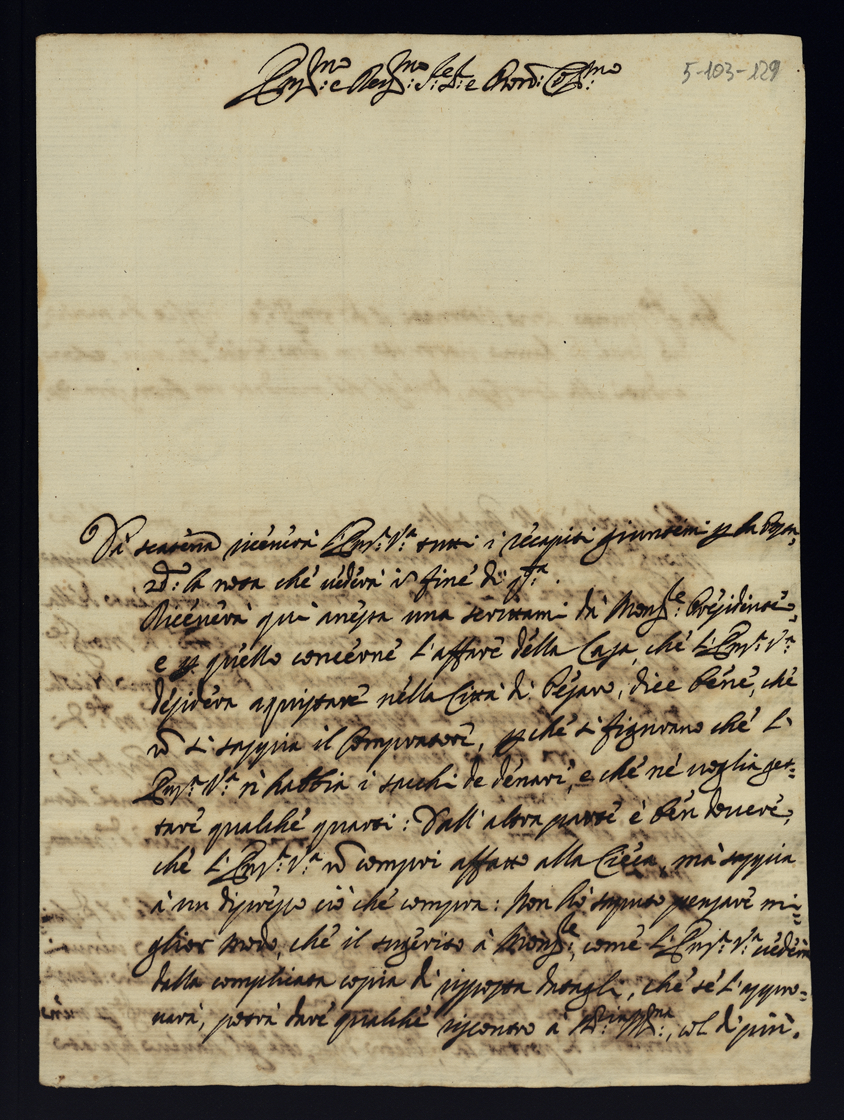 Em.mo e Rev.mo Sig.re S.r e Pron: Col.mo
5-103-129
Da scatena riceverà l'Em.a V.a tutti i recapiti giuntimi p la
la nota che vederà in fine di q.ta.
Riceverà qui anessa una scrittami da Mons.re Presidente,
e p quello concerne l'affare della Casa, che l'Em.a V.a
desidera aquistare nella Città di Pesaro, dice bene, che
n si sappia il Compratore, p che si figurano che l'
Em.a V.a n'habbia i sacchi de denari, e che ne voglia get=
tare qualche quarti: Dall'altra parte è ben dovere,
che l'Em.a V.a n compri affatto alla Cieca, mà sappia
à un dipresso ciò che compra: Non hò saputo pensare mi=
glior modo, che il sugerito à Mons.re, come l'Em.a V.a vederà
dalla complicata copia di risposta datagli, che se l'appro=
varà, potrà dare qualche riscontro à, col di più.